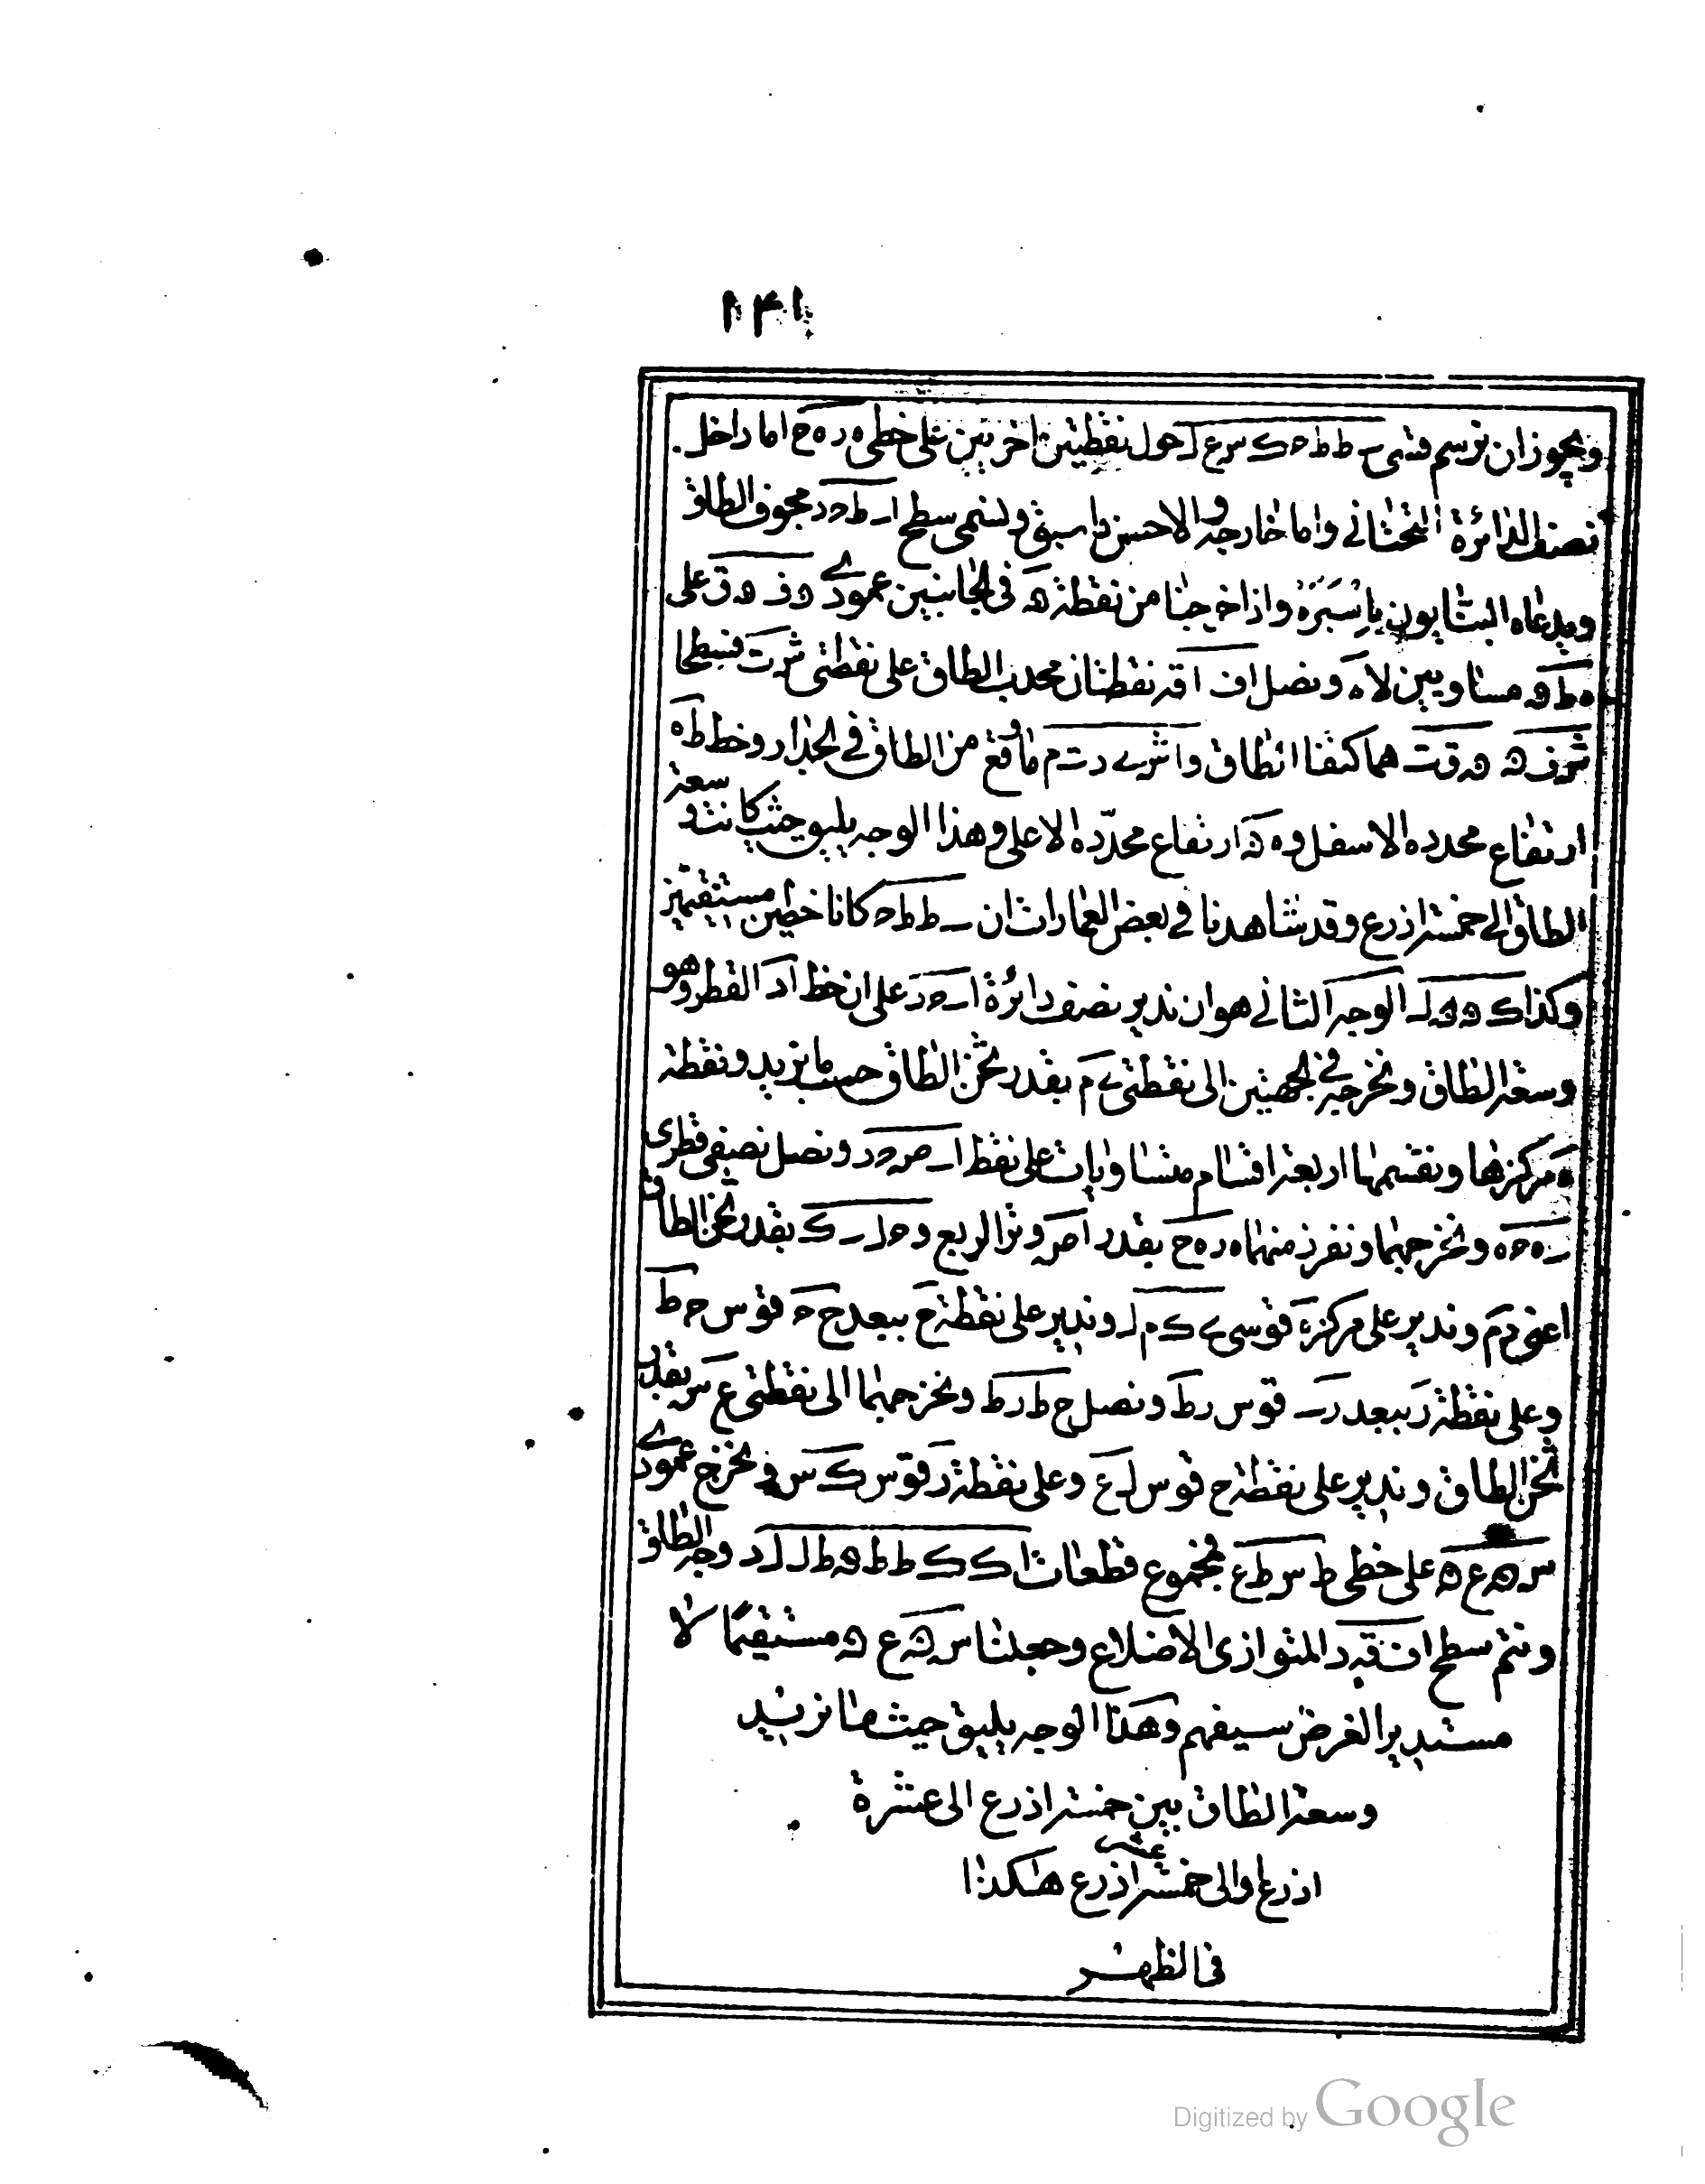 ۱۴۱
ويجوز ان نرسم قسى ـ ط ط ح ك س ع ل حول نقطتين اخريين على خطى ه ر ه ح اما داخل
نصف الدائرة التحتانى واما خارجه والاحسن ما سبق ولنسمى سطح ا ـ ط ح د مجوف الطاق
ويدعاه البناؤون واذا اخرجنا من نقطة ه فى الجانبين عمودى ه ف ه ق على
ه ط ه متساويين لا ه ونصل ا ف ا ق نقطتان محدب الطاق على نقطتى ش ت فسطحا
ش ف ه ه ق ت هما كتفا الطاق و ا ش ى د ت م ما وقع من الطاق فى الجدار وخط ط ه
ارتفاع محدده الاسفل و ه ه ارتفاع محدّده الاعلى وهذا الوجه يليق حيث كانت سعة
الطاق الى خمسة اذرع وقد شاهدنا فى بعض العمارات ان ـ ط ط ح كانا خطين مستقيمين
وكذا ك ه ه ل الوجه الثانى هو ان ندير نصف دائرة ا ـ ح د على ان خط ا د القطر وهو
وسعة الطاق ونخرجه فى الجهتين الى نقطتى ى م بقدر ثخن الطاق حسب ما نريد ونقطة
ه مركزها ونقسمها اربعة اقسام متساويات على نقط ا ـ ص ح د ونصل نصفى قطرى
ـ ه ح ه ونخرجهما ونفرز منهما ه ر ه ح بقدر ا ص وتر الربع و ح ل ـ ك بقدر ثخن الطاق
اعنى د م وندير على مركز ه قوسى ى ك م ل وندير على نقطة ح ببعد ح ح قوس ح ط
وعلى نقطة ر ببعد ر ـ قوس ـ ط ونصل ح ط ر ط ونخرجهما الى نقطتى ع س بقدر
ثخن الطاق وندير على نقطة ح قوس ل ع وعلى نقطة ر قوس ك س ونخرج عمودى
س ه ع ه على خطى ط س ط ع فمجموع قطعات ا ك ك ط ط ه ط ل ل د وجه الطاق
ونتم سطح ا ف ق د المتوازى الاضلاع وجعلنا س ه ع ه مستقيمًا لا
مستديرا لغرض سيفهم وهذا الوجه يليق حيث ما نريد
وسعة الطاق بين خمسة اذرع الى عشرة
اذرع والى خمسة عشر اذرع هكذا
فى الظهر
Digitized by Google